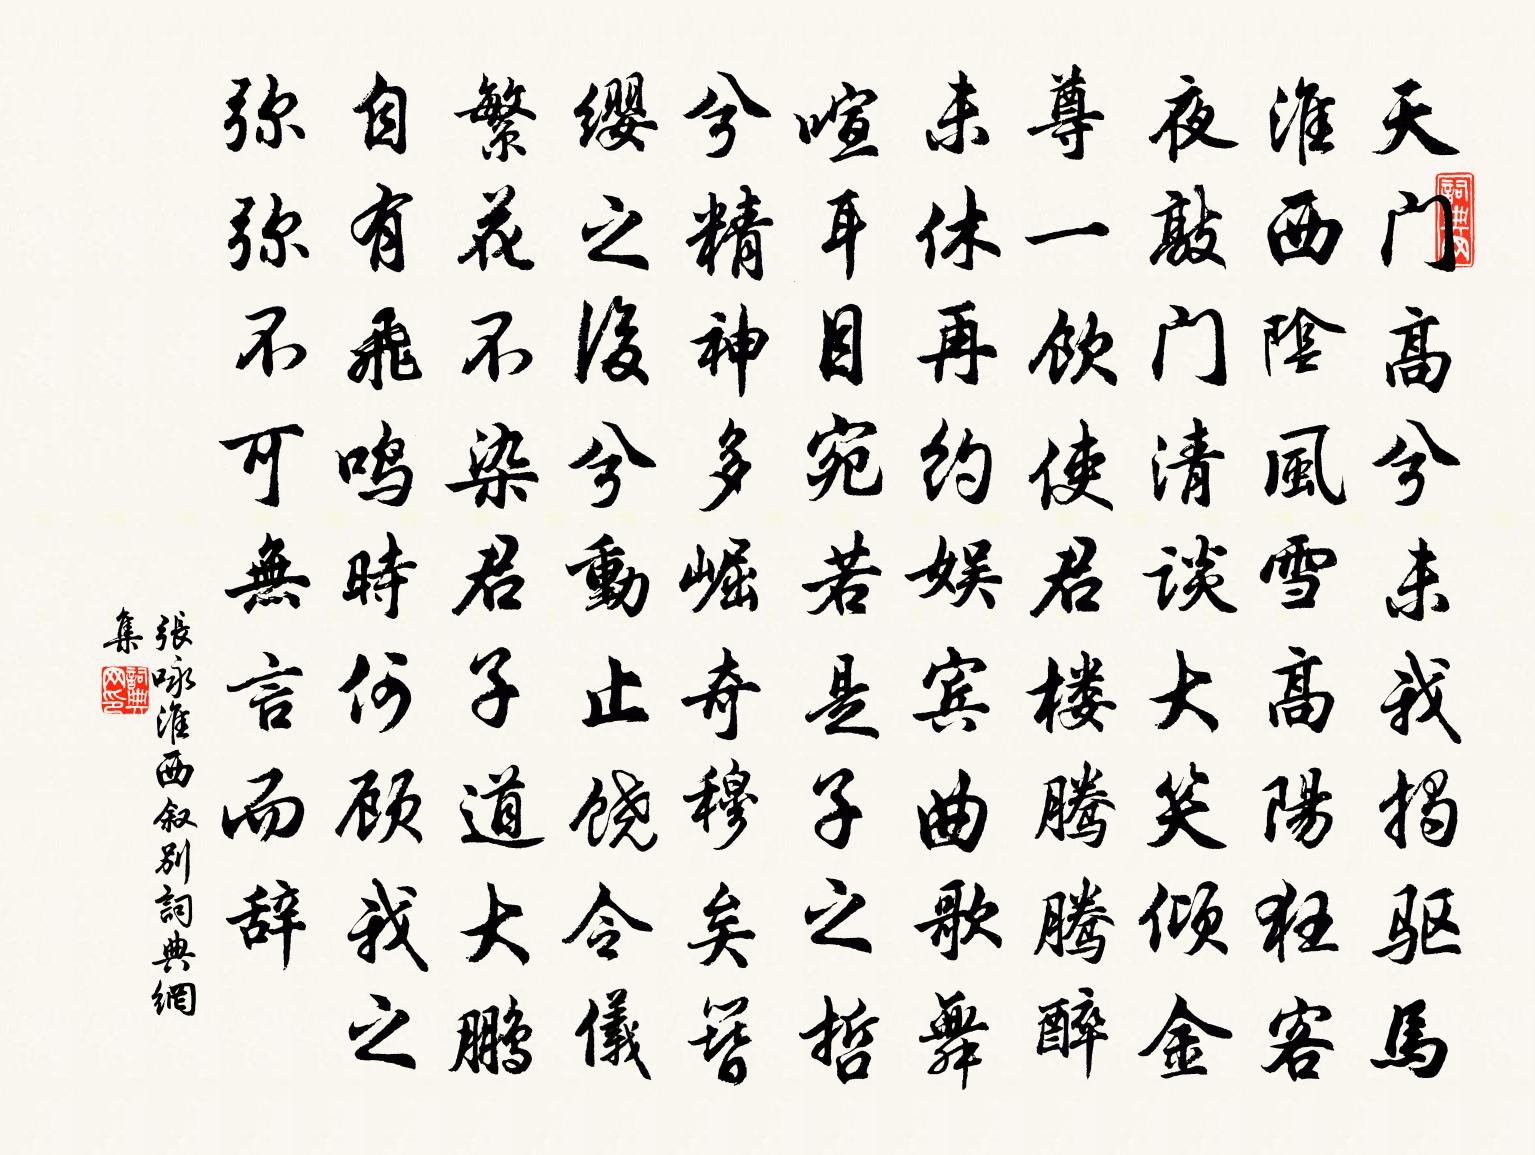 天门高兮未我揭驱馬
淮西陰風雪高陽狂客
夜敲门清談大笑倾金
尊一飲使君楼騰騰醉
未休再约娱宾曲歌舞
喧耳目宛若是子之哲
兮精神多崛奇穆矣簪
缨之後兮動止饶令儀
繁花不染君子道大鹏
自有飛鸣時何顾我之
弥弥不可無言而辞
張咏淮西叙别詞典網
集
詞典网
詞典网印